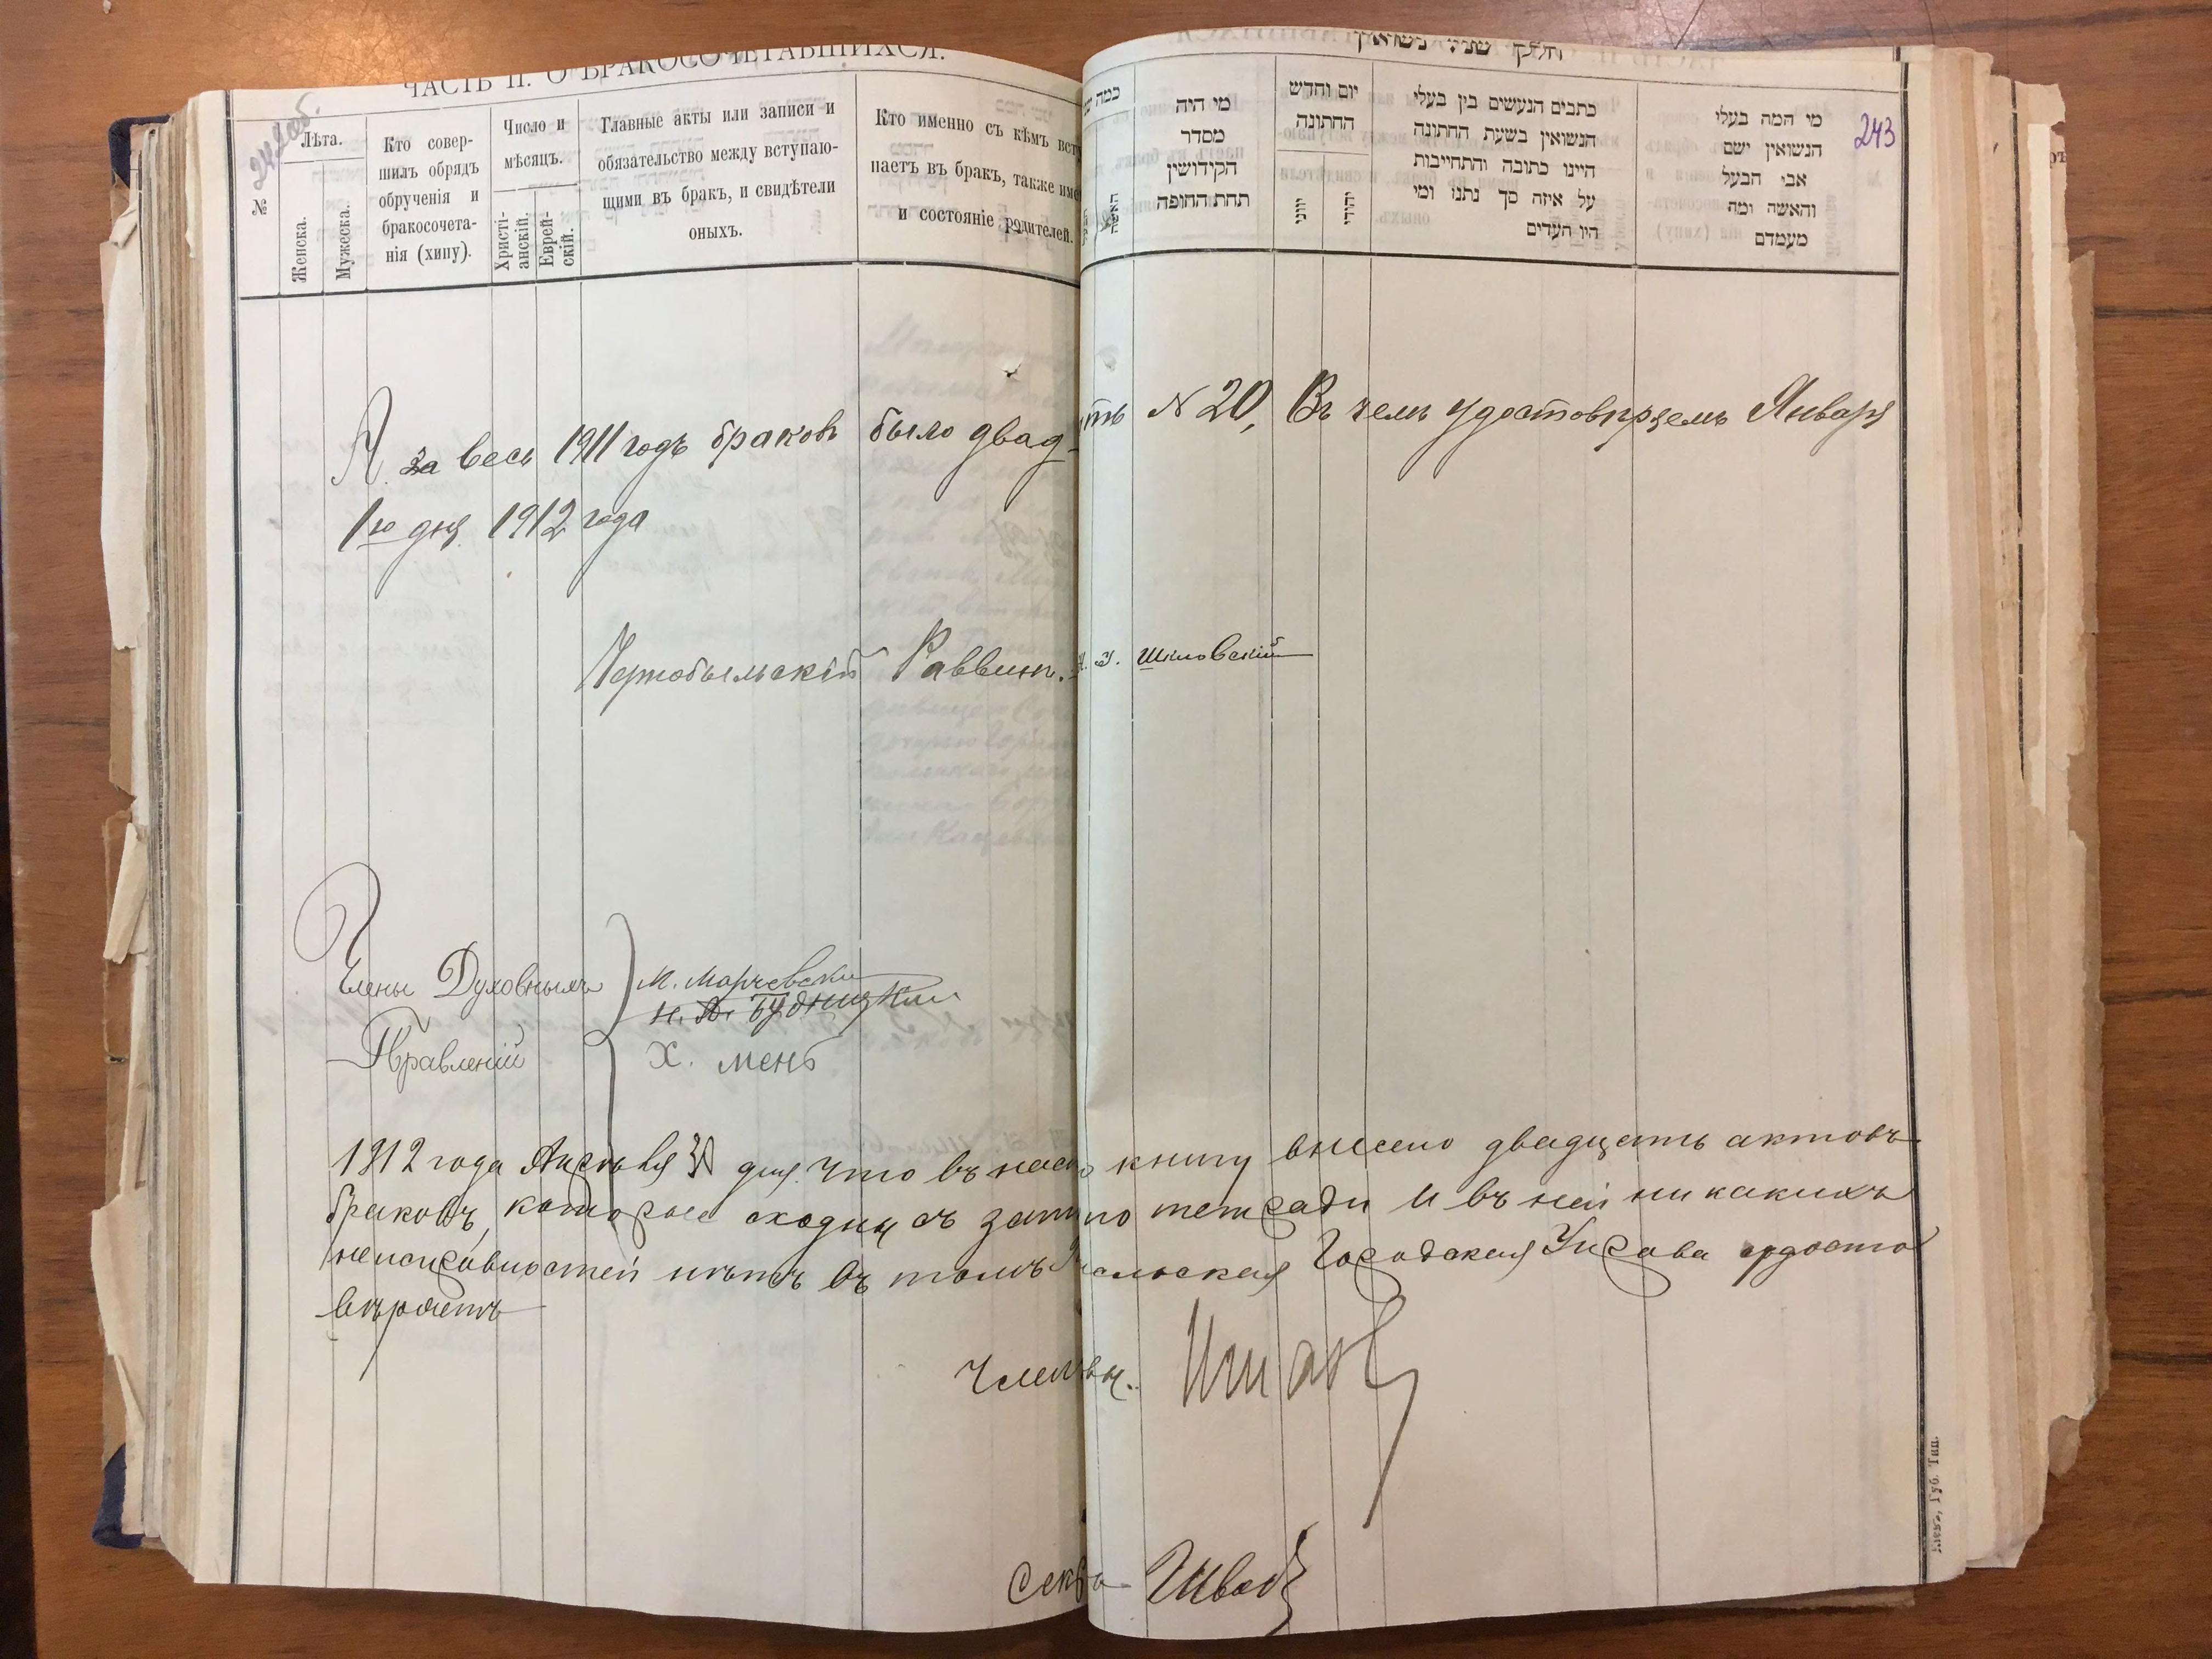 ЧАСТЬ II. О БРАКОСОЧЕТАВШИХСЯ.
№
Лѣта.
Женска.
Мужеска.
Кто совер-
шилъ обрядъ
обрученія и
бракосочета-
нія (хипу).
Число и
мѣсяцъ.
Христі-
анскій.
Еврей-
скій.
Главные акты или записи и
обязательство между вступаю-
щими въ бракъ, и свидѣтели
оныхъ.
Кто именно съ кѣмъ всту
паетъ въ бракъ, также име
и состояніе родителей.
חלק שני נשואין
כמה
האשה
מי היה
מסדר
הקידושין
תחת החופה
יום וחדש
החתונה
יווני
יהודי
כתבים הנעשים בין בעלי
הנשואין בשעת החתונה
היינו כתובה והתחייבות
על איזה סך נתנו ומי
היו העדים
מי המה בעלי
הנשואין ישם
אבי הבעל
והאשה ומה
מעמדם
243
А за весь 1911 годъ браковъ было двад- ть № 20, Въ чемъ удостовѣряемъ Января
1го дня 1912 года
Чернобыльскій Раввинъ. Шкловскій
Члены Духовныхъ
Правленій
М. Марчевски
Х. Менъ
1912 года дня что въ нас книгу внесено двадцать актовъ
браковъ, которые сходны съ тетради и въ ней никакихъ
неисправностей нѣтъ въ томъ Городская Управа удосто
вѣряетъ
Члены
Киевъ, Губ. Тип.